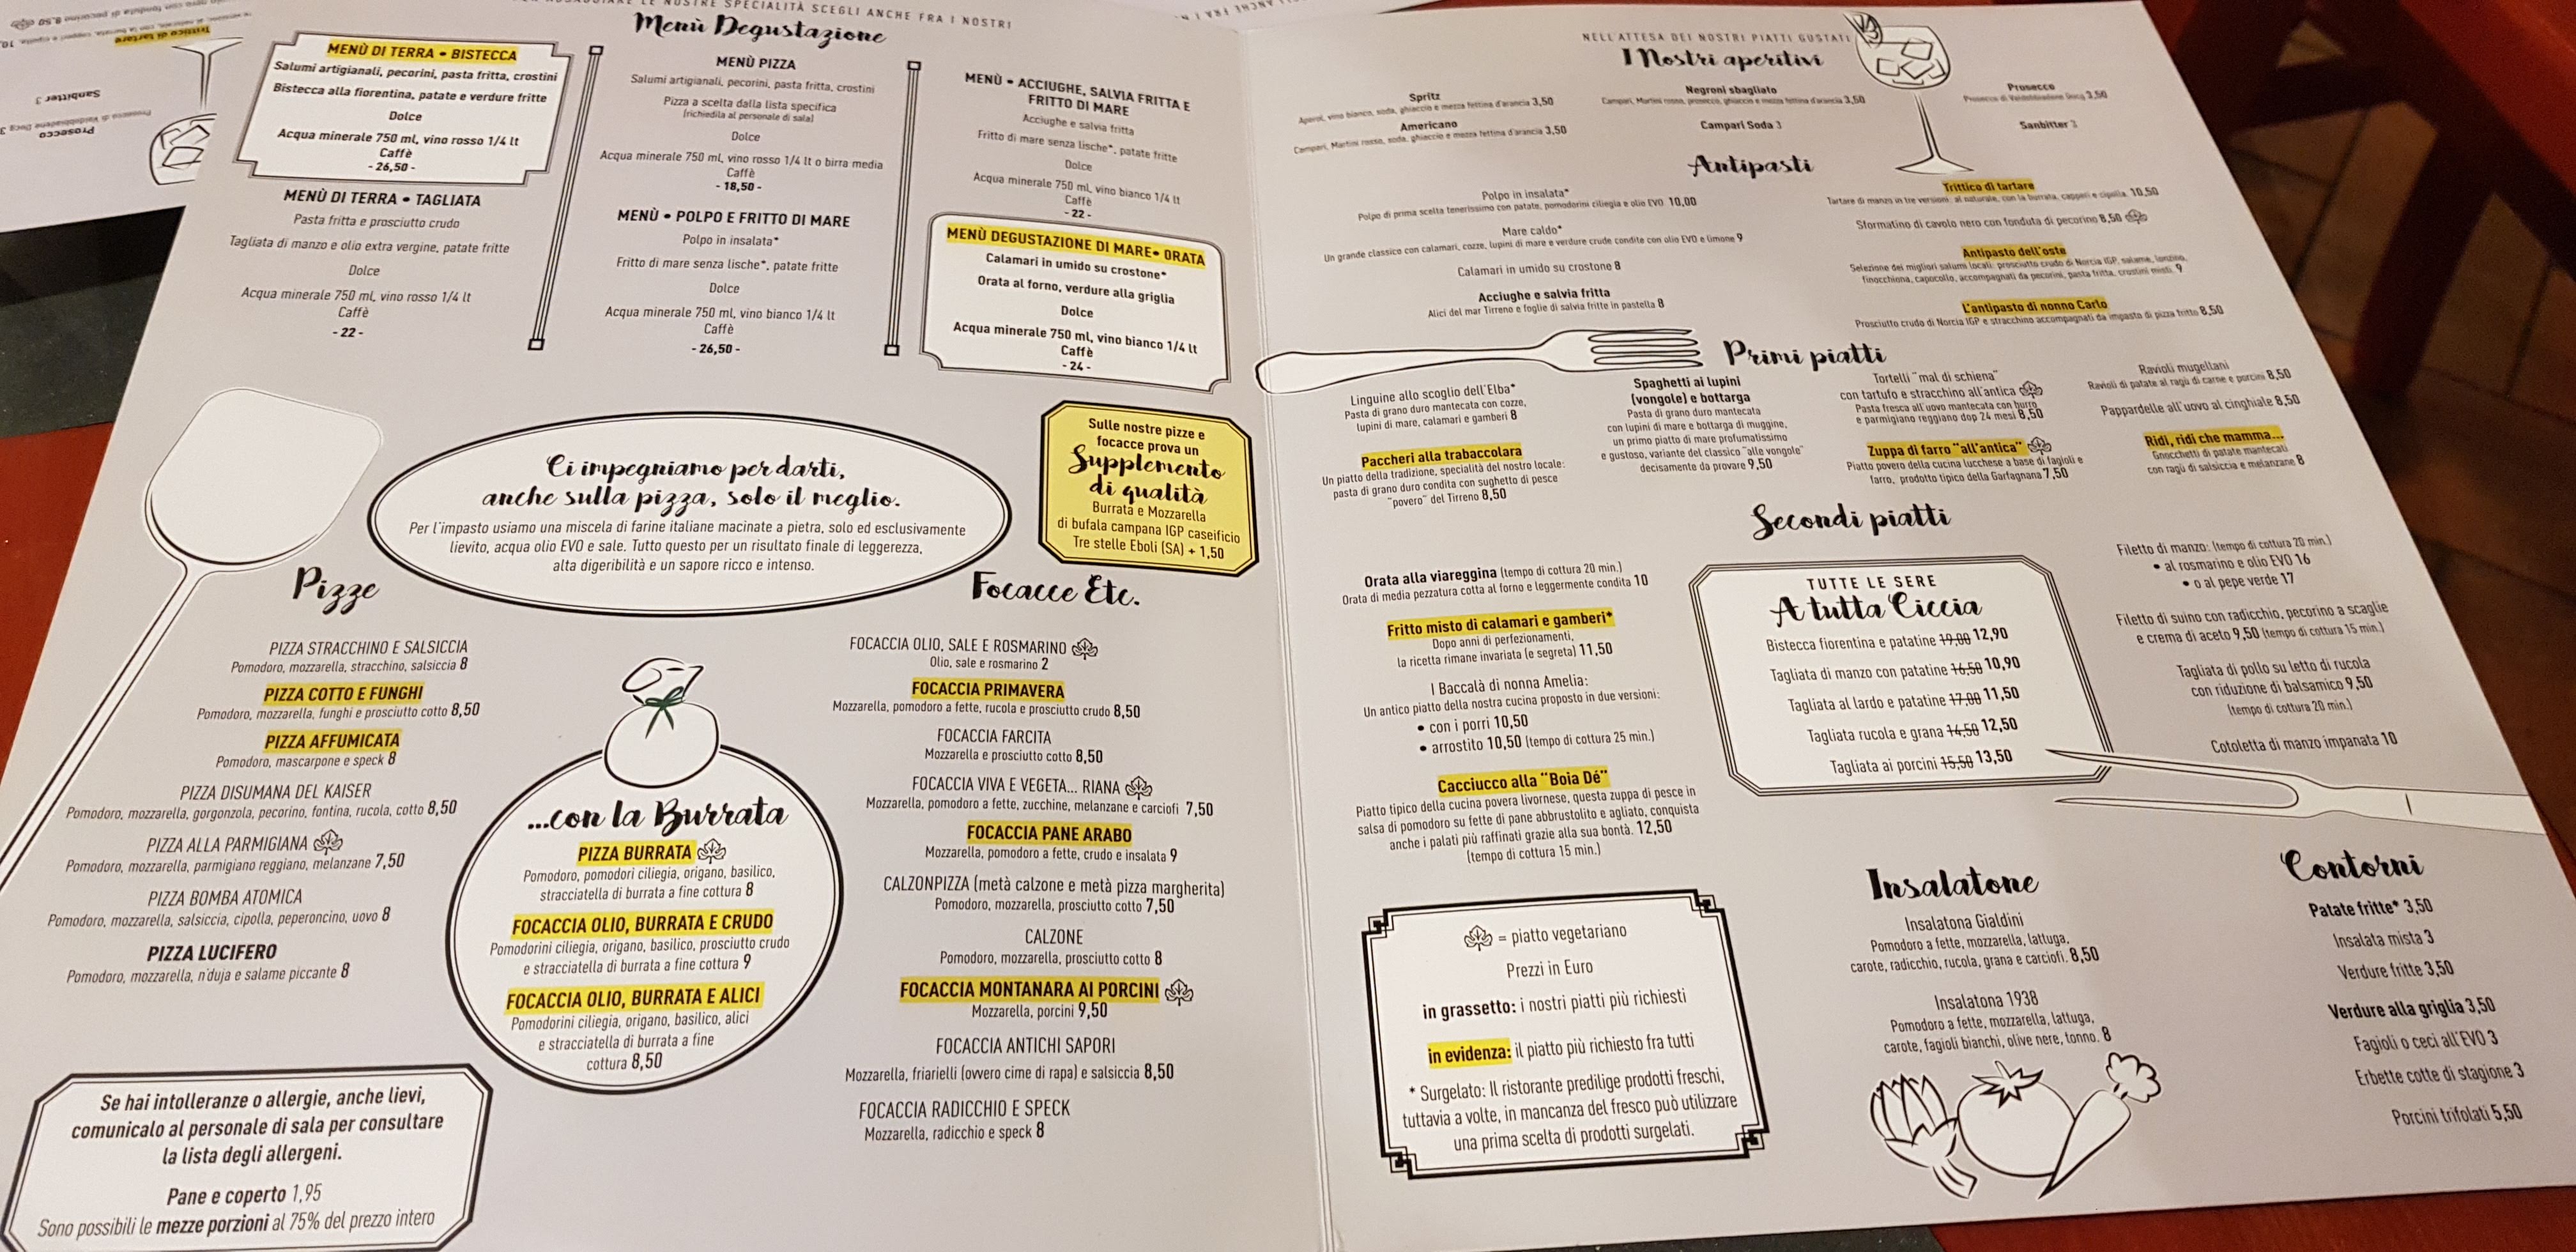 SPECIALITÀ SCEGLI ANCHE FRA I NOSTRI
Menù Degustazione
MENÙ DI TERRA • BISTECCA
Salumi artigianali, pecorini, pasta fritta, crostini
Bistecca alla fiorentina, patate e verdure fritte
Dolce
Acqua minerale 750 ml, vino rosso 1/4 lt
Caffè
- 26,50 -
MENÙ DI TERRA • TAGLIATA
Pasta fritta e prosciutto crudo
Tagliata di manzo e olio extra vergine, patate fritte
Dolce
Acqua minerale 750 ml, vino rosso 1/4 lt
Caffè
- 22 -
MENÙ PIZZA
Salumi artigianali, pecorini, pasta fritta, crostini
Pizza a scelta dalla lista specifica
(richiedila al personale di sala)
Dolce
Acqua minerale 750 ml, vino rosso 1/4 lt o birra media
Caffè
- 18,50 -
MENÙ • POLPO E FRITTO DI MARE
Polpo in insalata*
Fritto di mare senza lische*, patate fritte
Dolce
Acqua minerale 750 ml, vino bianco 1/4 lt
Caffè
- 26,50 -
MENÙ • ACCIUGHE, SALVIA FRITTA E
FRITTO DI MARE
Acciughe e salvia fritta
Fritto di mare senza lische*, patate fritte
Dolce
Acqua minerale 750 ml, vino bianco 1/4 lt
Caffè
- 22 -
MENÙ DEGUSTAZIONE DI MARE• ORATA
Calamari in umido su crostone*
Orata al forno, verdure alla griglia
Dolce
Acqua minerale 750 ml, vino bianco 1/4 lt
Caffè
- 24 -
Ci impegniamo per darti,
anche sulla pizza, solo il meglio.
Per l'impasto usiamo una miscela di farine italiane macinate a pietra, solo ed esclusivamente
lievito, acqua olio EVO e sale. Tutto questo per un risultato finale di leggerezza,
alta digeribilità e un sapore ricco e intenso.
Sulle nostre pizze e
focacce prova un
Supplemento
di qualità
Burrata e Mozzarella
di bufala campana IGP caseificio
Tre stelle Eboli (SA) + 1,50
Pizze
PIZZA STRACCHINO E SALSICCIA
Pomodoro, mozzarella, stracchino, salsiccia 8
PIZZA COTTO E FUNGHI
Pomodoro, mozzarella, funghi e prosciutto cotto 8,50
PIZZA AFFUMICATA
Pomodoro, mascarpone e speck 8
PIZZA DISUMANA DEL KAISER
Pomodoro, mozzarella, gorgonzola, pecorino, fontina, rucola, cotto 8,50
PIZZA ALLA PARMIGIANA
Pomodoro, mozzarella, parmigiano reggiano, melanzane 7,50
PIZZA BOMBA ATOMICA
Pomodoro, mozzarella, salsiccia, cipolla, peperoncino, uovo 8
PIZZA LUCIFERO
Pomodoro, mozzarella, n'duja e salame piccante 8
...con la Burrata
PIZZA BURRATA
Pomodoro, pomodori ciliegia, origano, basilico,
stracciatella di burrata a fine cottura 8
FOCACCIA OLIO, BURRATA E CRUDO
Pomodorini ciliegia, origano, basilico, prosciutto crudo
e stracciatella di burrata a fine cottura 9
FOCACCIA OLIO, BURRATA E ALICI
Pomodorini ciliegia, origano, basilico, alici
e stracciatella di burrata a fine
cottura 8,50
Focacce Etc.
FOCACCIA OLIO, SALE E ROSMARINO
Olio, sale e rosmarino 2
FOCACCIA PRIMAVERA
Mozzarella, pomodoro a fette, rucola e prosciutto crudo 8,50
FOCACCIA FARCITA
Mozzarella e prosciutto cotto 8,50
FOCACCIA VIVA E VEGETA... RIANA
Mozzarella, pomodoro a fette, zucchine, melanzane e carciofi 7,50
FOCACCIA PANE ARABO
Mozzarella, pomodoro a fette, crudo e insalata 9
CALZONPIZZA (metà calzone e metà pizza margherita)
Pomodoro, mozzarella, prosciutto cotto 7,50
CALZONE
Pomodoro, mozzarella, prosciutto cotto 8
FOCACCIA MONTANARA AI PORCINI
Mozzarella, porcini 9,50
FOCACCIA ANTICHI SAPORI
Mozzarella, friarielli (ovvero cime di rapa) e salsiccia 8,50
FOCACCIA RADICCHIO E SPECK
Mozzarella, radicchio e speck 8
Se hai intolleranze o allergie, anche lievi,
comunicalo al personale di sala per consultare
la lista degli allergeni.
Pane e coperto 1,95
Sono possibili le mezze porzioni al 75% del prezzo intero
NELL'ATTESA DEI NOSTRI PIATTI GUSTATI
I Nostri aperitivi
Spritz
Aperol, vino bianco, soda, ghiaccio e mezza fettina d'arancia 3,50
Americano
Campari, Martini rosso, soda, ghiaccio e mezza fettina d'arancia 3,50
Negroni sbagliato
Campari, Martini rosso, prosecco, ghiaccio e mezza fettina d'arancia 3,50
Campari Soda 3
Prosecco
Prosecco di Valdobbiadene Docg 3,50
Sanbitter 3
Antipasti
Polpo in insalata*
Polpo di prima scelta tenerissimo con patate, pomodorini ciliegia e olio EVO 10,00
Mare caldo*
Un grande classico con calamari, cozze, lupini di mare e verdure crude condite con olio EVO e limone 9
Calamari in umido su crostone 8
Acciughe e salvia fritta
Alici del mar Tirreno e foglie di salvia fritte in pastella 8
Trittico di tartare
Tartare di manzo in tre versioni: al naturale, con la burrata, capperi e cipolla 10,50
Sformatino di cavolo nero con fonduta di pecorino 8,50
Antipasto dell'oste
Selezione dei migliori salumi locali: prosciutto crudo di Norcia IGP, salame, lonzino,
finocchiona, capocollo, accompagnati da pecorini, pasta fritta, crostini misti 9
L'antipasto di nonno Carlo
Prosciutto crudo di Norcia IGP e stracchino accompagnati da impasto di pizza fritto 8,50
Primi piatti
Linguine allo scoglio dell'Elba*
Pasta di grano duro mantecata con cozze,
lupini di mare, calamari e gamberi 8
Paccheri alla trabaccolara
Un piatto della tradizione, specialità del nostro locale:
pasta di grano duro condita con sughetto di pesce
"povero" del Tirreno 8,50
Spaghetti ai lupini
(vongole) e bottarga
Pasta di grano duro mantecata
con lupini di mare e bottarga di muggine,
un primo piatto di mare profumatissimo
e gustoso, variante del classico "alle vongole"
decisamente da provare 9,50
Tortelli "mal di schiena"
con tartufo e stracchino all'antica
Pasta fresca all'uovo mantecata con burro
e parmigiano reggiano dop 24 mesi 8,50
Zuppa di farro "all'antica"
Piatto povero della cucina lucchese a base di fagioli e
farro, prodotto tipico della Garfagnana 7,50
Ravioli mugellani
Ravioli di patate al ragù di carne e porcini 8,50
Pappardelle all'uovo al cinghiale 8,50
Ridi, ridi che mamma...
Gnocchetti di patate mantecati
con ragù di salsiccia e melanzane 8
Secondi piatti
Orata alla viareggina (tempo di cottura 20 min.)
Orata di media pezzatura cotta al forno e leggermente condita 10
Fritto misto di calamari e gamberi*
Dopo anni di perfezionamenti,
la ricetta rimane invariata (e segreta) 11,50
I Baccalà di nonna Amelia:
Un antico piatto della nostra cucina proposto in due versioni:
• con i porri 10,50
• arrostito 10,50 (tempo di cottura 25 min.)
Cacciucco alla "Boia Dé"
Piatto tipico della cucina povera livornese, questa zuppa di pesce in
salsa di pomodoro su fette di pane abbrustolito e agliato, conquista
anche i palati più raffinati grazie alla sua bontà. 12,50
(tempo di cottura 15 min.)
TUTTE LE SERE
A tutta Ciccia
Bistecca fiorentina e patatine 19,00 12,90
Tagliata di manzo con patatine 16,50 10,90
Tagliata al lardo e patatine 17,00 11,50
Tagliata rucola e grana 14,50 12,50
Tagliata ai porcini 15,50 13,50
Filetto di manzo: (tempo di cottura 20 min.)
• al rosmarino e olio EVO 16
• o al pepe verde 17
Filetto di suino con radicchio, pecorino a scaglie
e crema di aceto 9,50 (tempo di cottura 15 min.)
Tagliata di pollo su letto di rucola
con riduzione di balsamico 9,50
(tempo di cottura 20 min.)
Cotoletta di manzo impanata 10
= piatto vegetariano
Prezzi in Euro
in grassetto: i nostri piatti più richiesti
in evidenza: il piatto più richiesto fra tutti
* Surgelato: Il ristorante predilige prodotti freschi,
tuttavia a volte, in mancanza del fresco può utilizzare
una prima scelta di prodotti surgelati.
Insalatone
Insalatona Gialdini
Pomodoro a fette, mozzarella, lattuga,
carote, radicchio, rucola, grana e carciofi. 8,50
Insalatona 1938
Pomodoro a fette, mozzarella, lattuga,
carote, fagioli bianchi, olive nere, tonno. 8
Contorni
Patate fritte* 3,50
Insalata mista 3
Verdure fritte 3,50
Verdure alla griglia 3,50
Fagioli o ceci all'EVO 3
Erbette cotte di stagione 3
Porcini trifolati 5,50
Trittico di tartare
Sanbitter 3
Prosecco